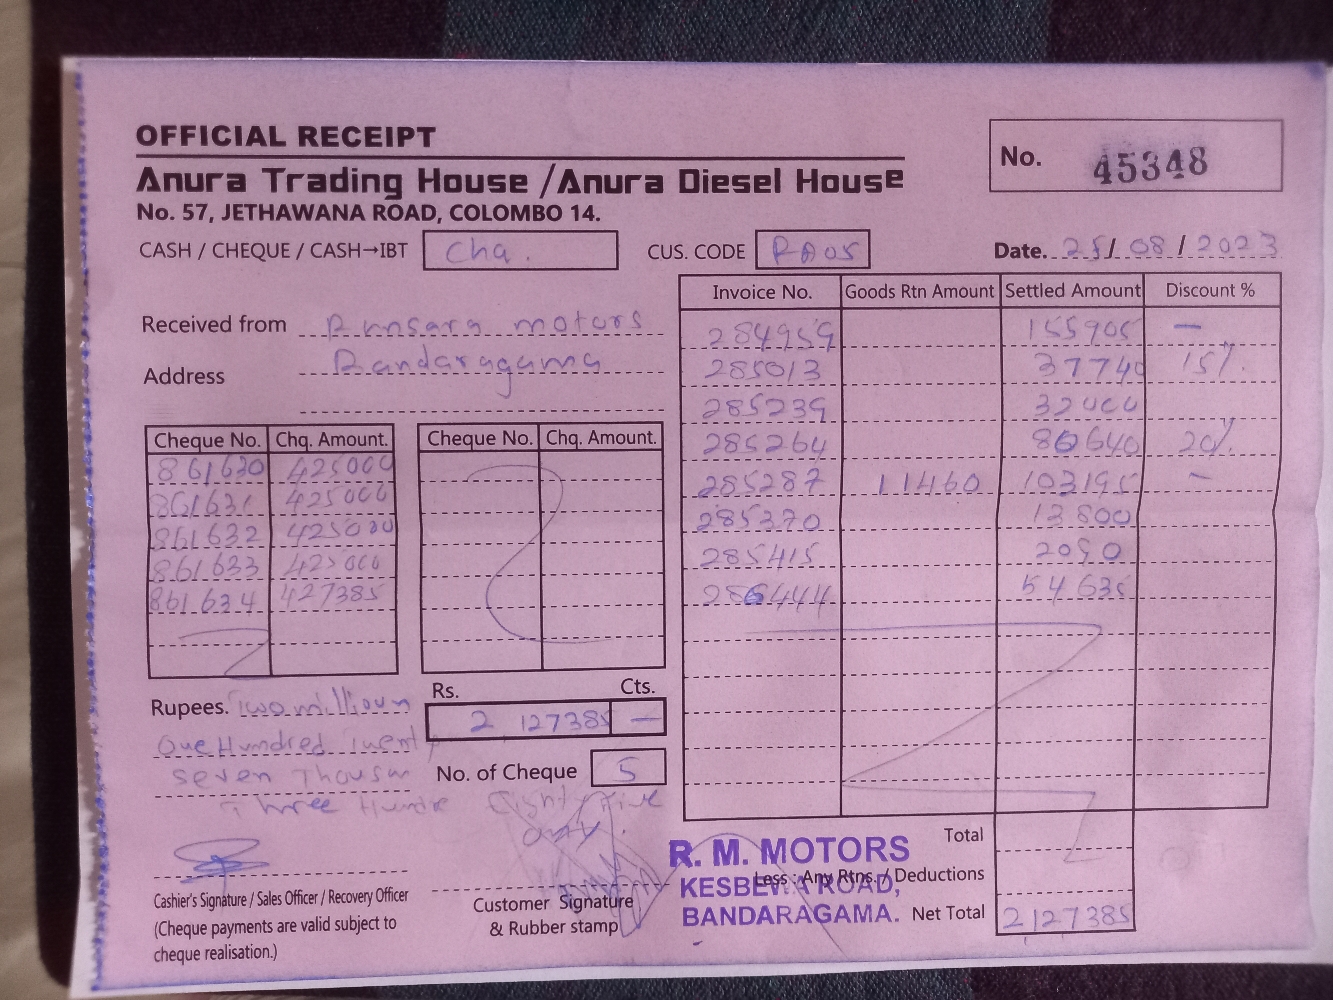 OFFICIAL RECEIPT
Anura Trading House /Anura Diesel House
No. 57, JETHAWANA ROAD, COLOMBO 14.
No. 45348
CASH / CHEQUE / CASH→IBT Chq.
CUS. CODE
Date. 25/ 08 / 2023
Received from motors
Address Bandaragama
Cheque No. Chq. Amount. Cheque No. Chq. Amount.
861630 425000
861631 425000
861632 425000
861633 425000
861634 427385
Invoice No. Goods Rtn Amount Settled Amount Discount %
284959 155905 —
285013 37740 15%.
285239 32000
285264 80640 20%.
285287 11460 103195 —
285370 13800
285415 2090
286444 54635
Rupees. Two millioun
One Hundred Twenty
seven Thousan
Three Hundre Eighty Five
only.
Rs. Cts.
2 127385 —
No. of Cheque 5
Cashier's Signature / Sales Officer / Recovery Officer
(Cheque payments are valid subject to
cheque realisation.)
Customer Signature
& Rubber stamp
R. M. MOTORS
KESBEWA ROAD,
BANDARAGAMA.
Total
Less : Any Rtns. / Deductions
Net Total 2127385